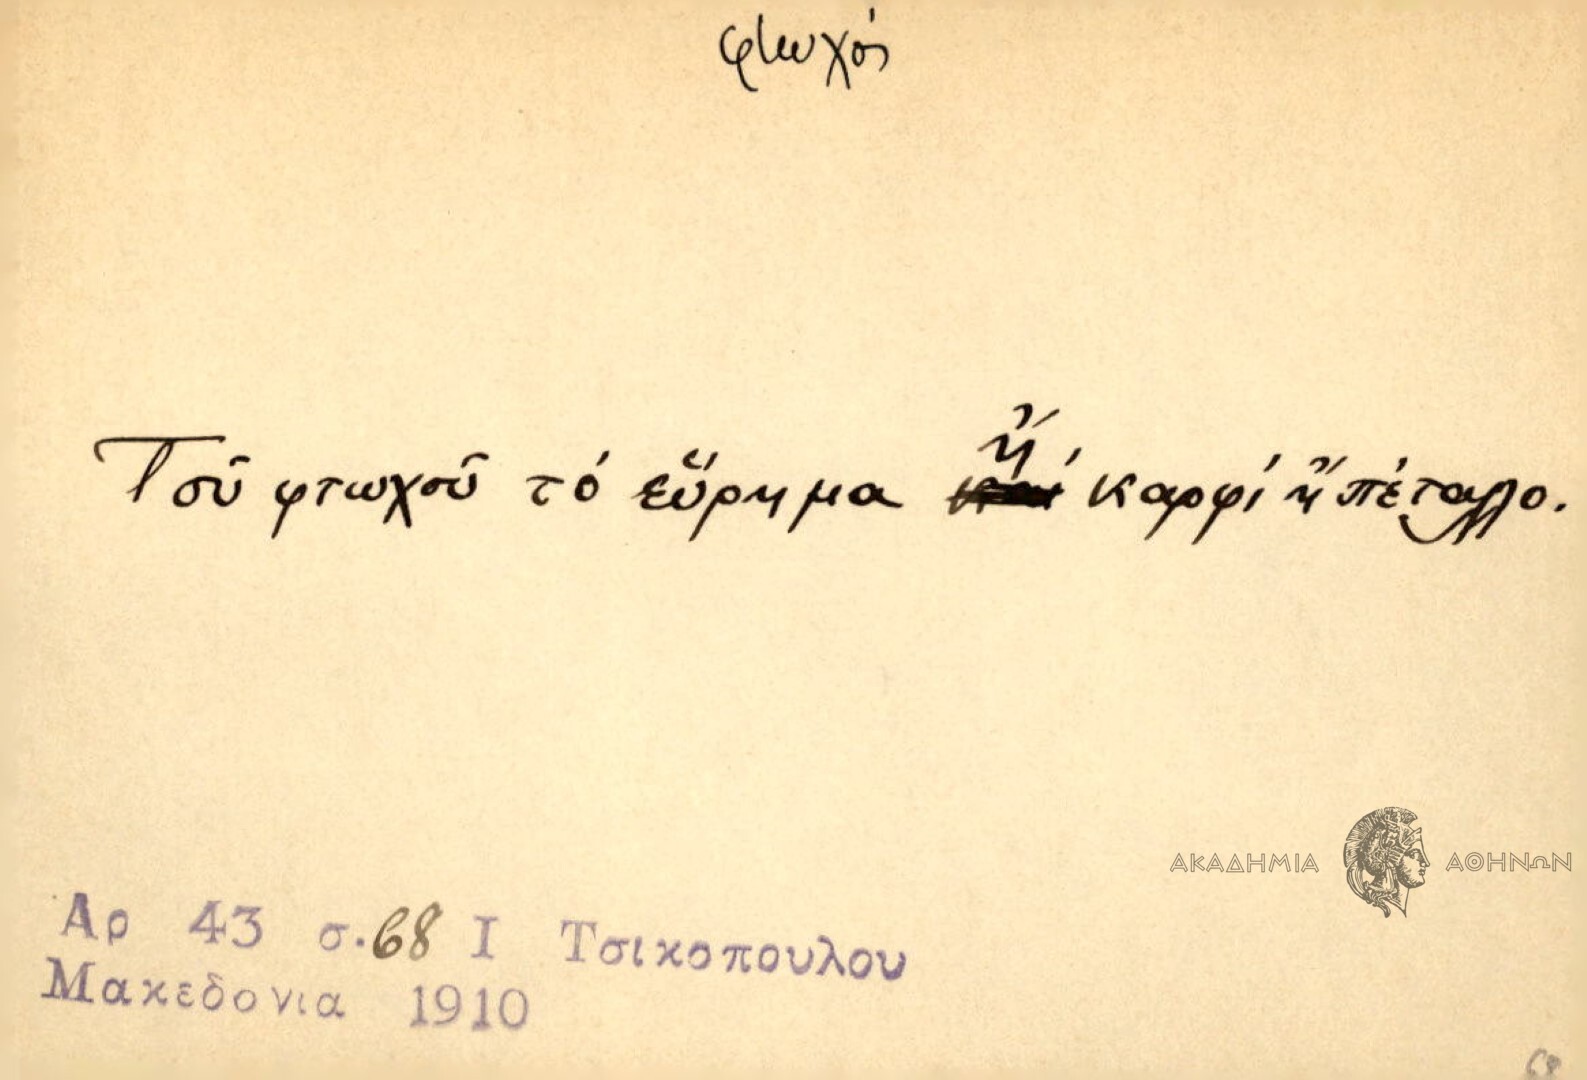 φτωχός
Τοῦ φτωχοῦ τό εὕρημα ἤ καρφί ἤ πέταλλο.
ΑΚΑΔΗΜΙΑ ΑΘΗΝΩΝ
Αρ 43 σ.68 Ι Τσικοπουλου
Μακεδονια 1910
68